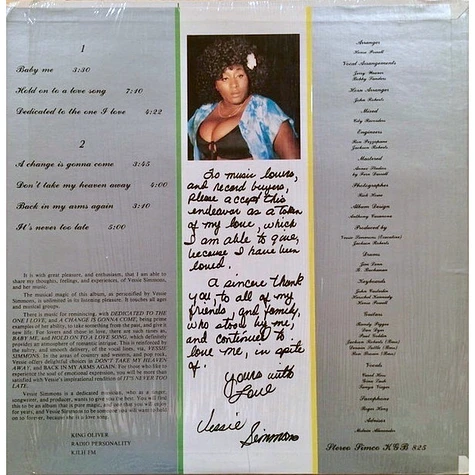 1
Baby me 3:30
Hold on to a love song 7:10
Dedicated to the one I love 4:22
2
A change is gonna come 3:45
Don't take my heaven away 4:00
Back in my arms again 8:10
It's never too late 5:00
It is with great pleasure, and enthusiasm, that I am able to
share my thoughts, feelings, and experiences, of Vessie Simmons,
with you.
The musical magic of this album, as personified by Vessie
Simmons, is unlimited in its listening pleasure. It touches all ages
and musical groups.
There is music for reminiscing, with DEDICATED TO THE
ONE I LOVE, and A CHANGE IS GONNA COME, being prime
examples of her ability, to take something from the past, and give it
new life. For lovers and those in love, there are such tunes as,
BABY ME, and HOLD ON TO A LOVE SONG, which definitely
provides an atmosphere of tranquil intrigue. This is reinforced by
the sultry, and smooth delivery, of the vocal lines, via, VESSIE
SIMMONS. In the areas of country and western, and pop rock,
Vessie offers delightful choices in DON'T TAKE MY HEAVEN
AWAY, and BACK IN MY ARMS AGAIN. For those who like to
experience the soul of emotional expression, you will be more than
satisfied with Vessie's inspirational rendition of IT'S NEVER TOO
LATE.
Vessie Simmons is a dedicated musician, who as a singer,
songwriter, and producer, wants to give you the best. You will find
this to be an album that is pure magic, and one that you will enjoy
for years, and Vessie to be someone you will want to hold
on to forever, because she is a love song.
KING OLIVER
RADIO PERSONALITY
KJLH FM
To music lovers,
and record buyers,
please accept this
endeavor as a token
of my love, which
I am able to give,
because I have been
loved.
A sincere thank
you to all of my
friends and family,
who stood by me,
and continued to
love me, in spite
of.
Yours with
Love
Vessie
Simmons
Arranger
Vocal Arrangements
Horn Arranger
John Roberts
Mixed
Engineers
Jackson Roberts
Mastered
Photographer
Album Design
Produced by
Vessie Simmons (Executive)
Jackson Roberts
Drums
Keyboards
Guitars
Jackson Roberts
Vocals
Saxophone
Roger King
Advisor
Stereo Simco KGB 825